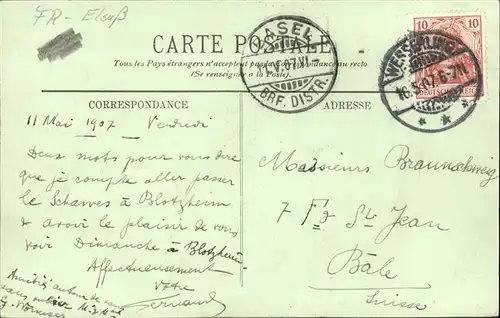 FR - Elsaß
CARTE POSTALE
Tous les Pays étrangers n'acceptent pas la Correspondance au recto
(Se renseigner à la Poste).
BASEL
BRF. DISTR.
10 10
DEUTSCHES REICH
WESSERLING
CORRESPONDANCE
ADRESSE
11 Mai 1907 Vendredi
Deux mots pour vous dire
que je compte aller passer
le à Blotzheim
& avoir le plaisir de vous
voir Dimanche à Blotzheim
Affectueusement
Votre
Fernand
Amitiés autour de vous
sans oublier
Messieurs Braunschweig
7 Fg St Jean
Bâle
Suisse